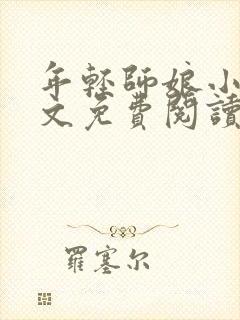 年輕師娘小
文免費閱讀
羅塞尔